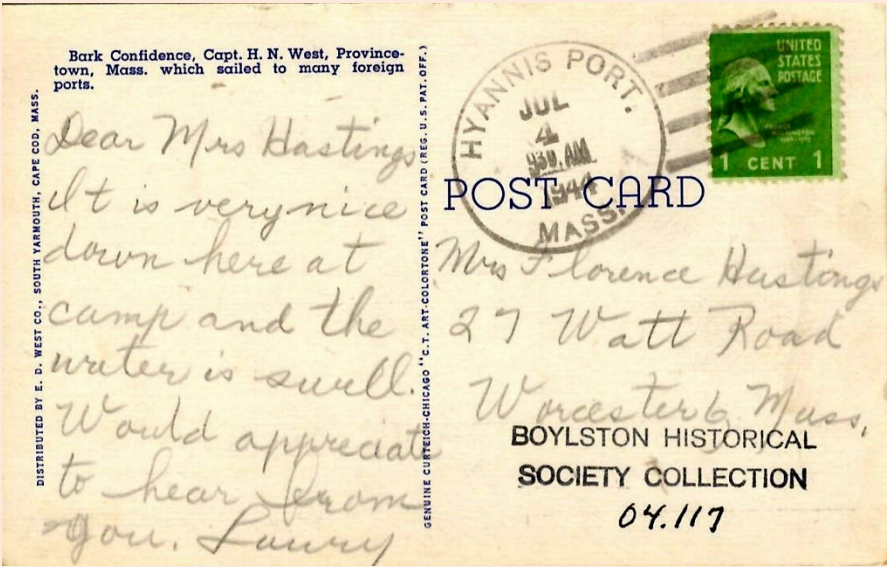 Bark Confidence, Capt. H. N. West, Province-
town, Mass. which sailed to many foreign
ports.
DISTRIBUTED BY E. D. WEST CO., SOUTH YARMOUTH, CAPE COD, MASS.
Dear Mrs Hastings
It is very nice
down here at
camp and the
water is swell.
Would appreciate
to hear from
you.
GENUINE CURTEICH-CHICAGO "C.T. ART-COLORTONE" POST CARD (REG. U.S. PAT. OFF.)
HYANNIS PORT.
JUL
4
930 AM
1944
MASS.
UNITED
STATES
POSTAGE
1 CENT 1
POST CARD
Mrs Florence Hastings
27 Watt Road
Worcester 6 Mass.
BOYLSTON HISTORICAL
SOCIETY COLLECTION
04.117